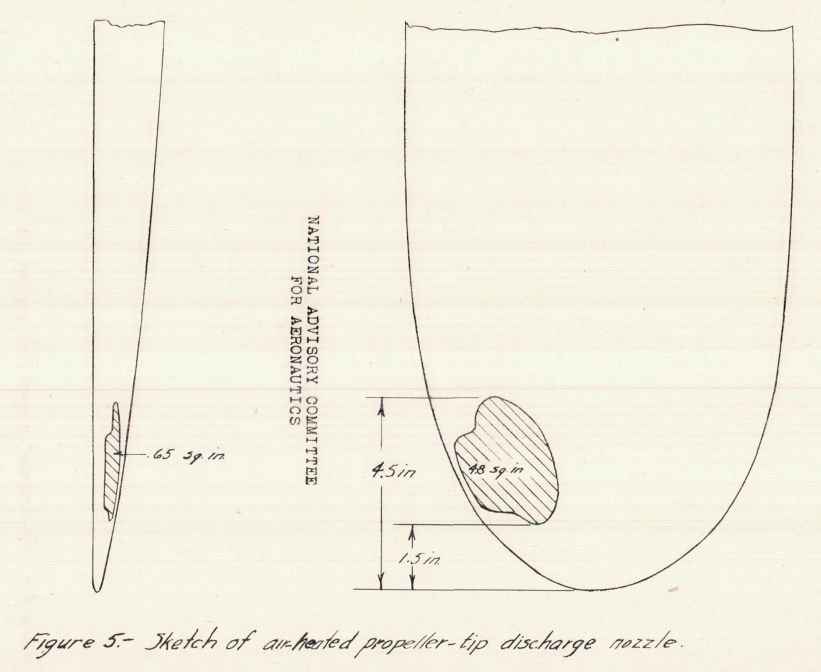 NATIONAL ADVISORY COMMITTEE
FOR AERONAUTICS
.65 sq. in.
4.5 in
4.8 sq. in
1.5 in.
Figure 5.- Sketch of air-heated propeller-tip discharge nozzle.